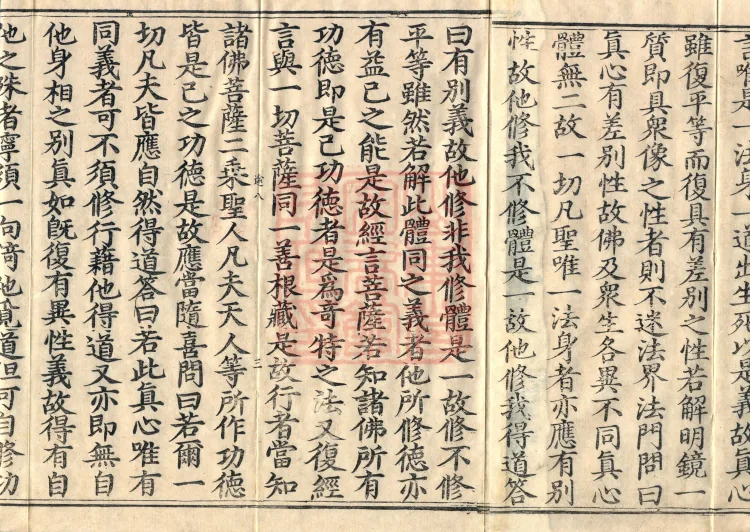 言唯是一法身一道出生死以是義故真心
雖復平等而復具有差別之性若解明鏡一
質即具衆像之性者則不迷法界法門問曰
真心有差別性故佛及衆生各異不同真心
體無二故一切凡聖唯一法身者亦應有別
性故他修我不修體是一故他修我得道答
曰有別義故他修非我修體是一故修不修
平等雖然若解此體同之義者他所修德亦
有益己之能是故經言菩薩若知諸佛所有
功德即是己功德者是為奇特之法又復經
言與一切菩薩同一善根藏是故行者當知
諸佛菩薩二乘聖人凡夫天人等所作功德
皆是己之功德是故應當隨喜問曰若爾一
切凡夫皆應自然得道答曰若此真心唯有
同義者可不須修行藉他得道又亦即無自
他身相之別真如旣復有異性義故得有自
他之殊者寧須一句倚他覓道但可自修功